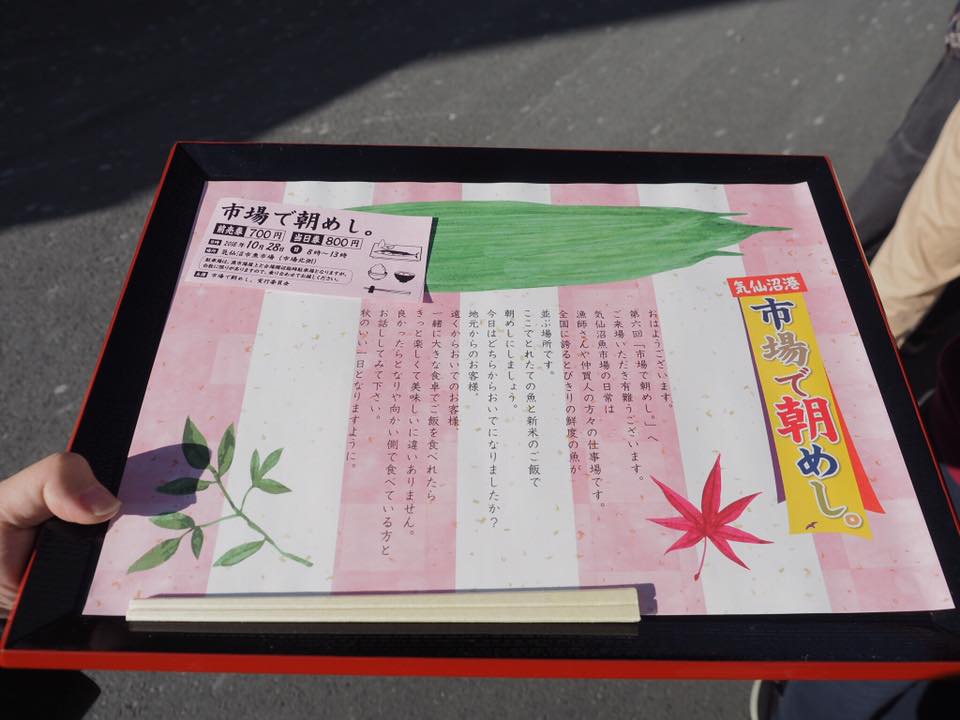 市場で朝めし。
前売券 700円 当日券 800円
日時 2018年10月28日 日 8時〜13時
場所 気仙沼市魚市場（市場北側）
駐車場は、魚市場屋上と会場隣は臨時駐車場となりますが、
台数に限りがありますので、乗り合わせてお越しください。
主催 市場で朝めし。実行委員会
気仙沼港
市場で朝めし。
おはようございます。
第六回「市場で朝めし。」へ
ご来場いただき有難うございます。
気仙沼魚市場の日常は
漁師さんや仲買人の方々の仕事場です。
全国に誇るとびきりの鮮度の魚が
並ぶ場所です。
ここでとれたての魚と新米のご飯で
朝めしにしましょう。
今日はどちらからおいでになりましたか？
地元からのお客様、
遠くからおいでのお客様、
一緒に大きな食卓でご飯を食べれたら
きっと楽しくて美味しいに違いありません。
良かったらとなりや向かい側で食べている方と
お話ししてみて下さい。
秋のいい一日となりますように。